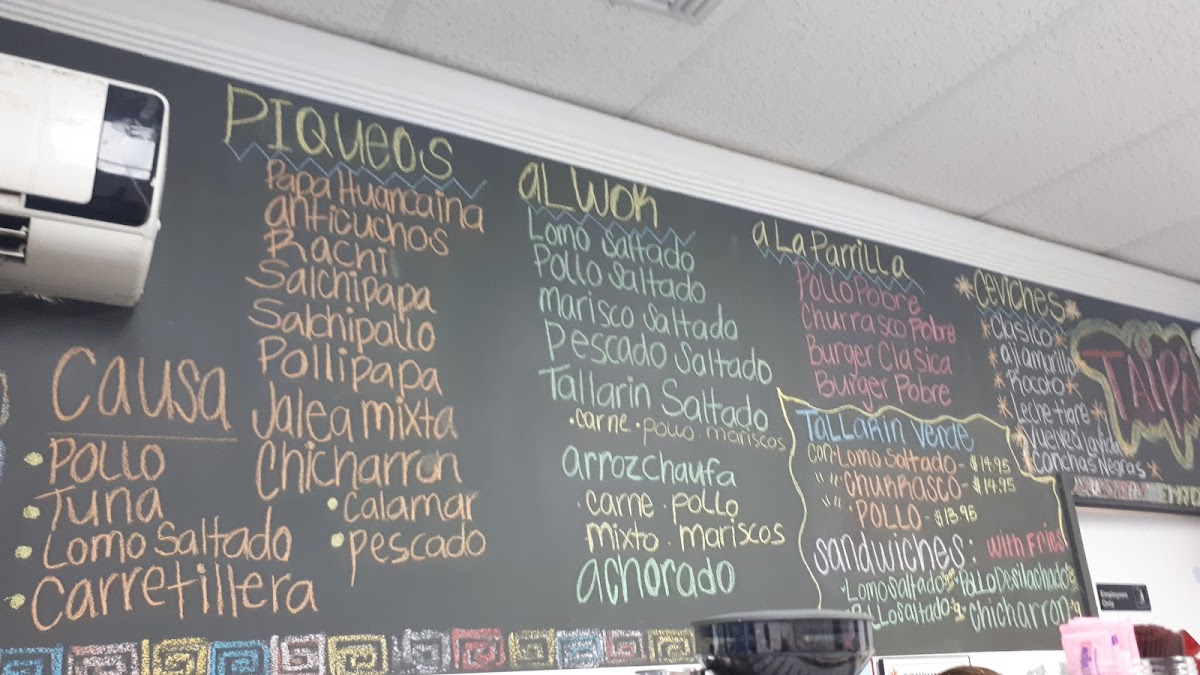 PIQUEOS
Papa Huancaina
anticuchos
Rachi
Salchipapa
Salchipollo
Pollipapa
Jalea mixta
Chicharron
• Calamar
• pescado
Causa
• Pollo
• Tuna
• Lomo Saltado
• Carretillera
aL WOK
Lomo Saltado
Pollo Saltado
marisco Saltado
Pescado Saltado
Tallarin Saltado
• carne • pollo • mariscos
arroz chaufa
• carne • pollo
mixto • mariscos
achorado
a La Parrilla
Pollo Pobre
Churrasco Pobre
Burger Clasica
Burger Pobre
TaLLarin verde
con • Lomo Saltado - $14.95
" " • Churrasco - $14.95
" " • POLLO - $13.95
Sandwiches: with Fries
• Lomo saltado • Pollo Desilachado
• Pollo saltado • Chicharron
Ceviches
Clasico
aji amarillo
Rocoto
Leche tigre
Vuelve a la vida
Conchas Negras
TAIPA
Employees
Only